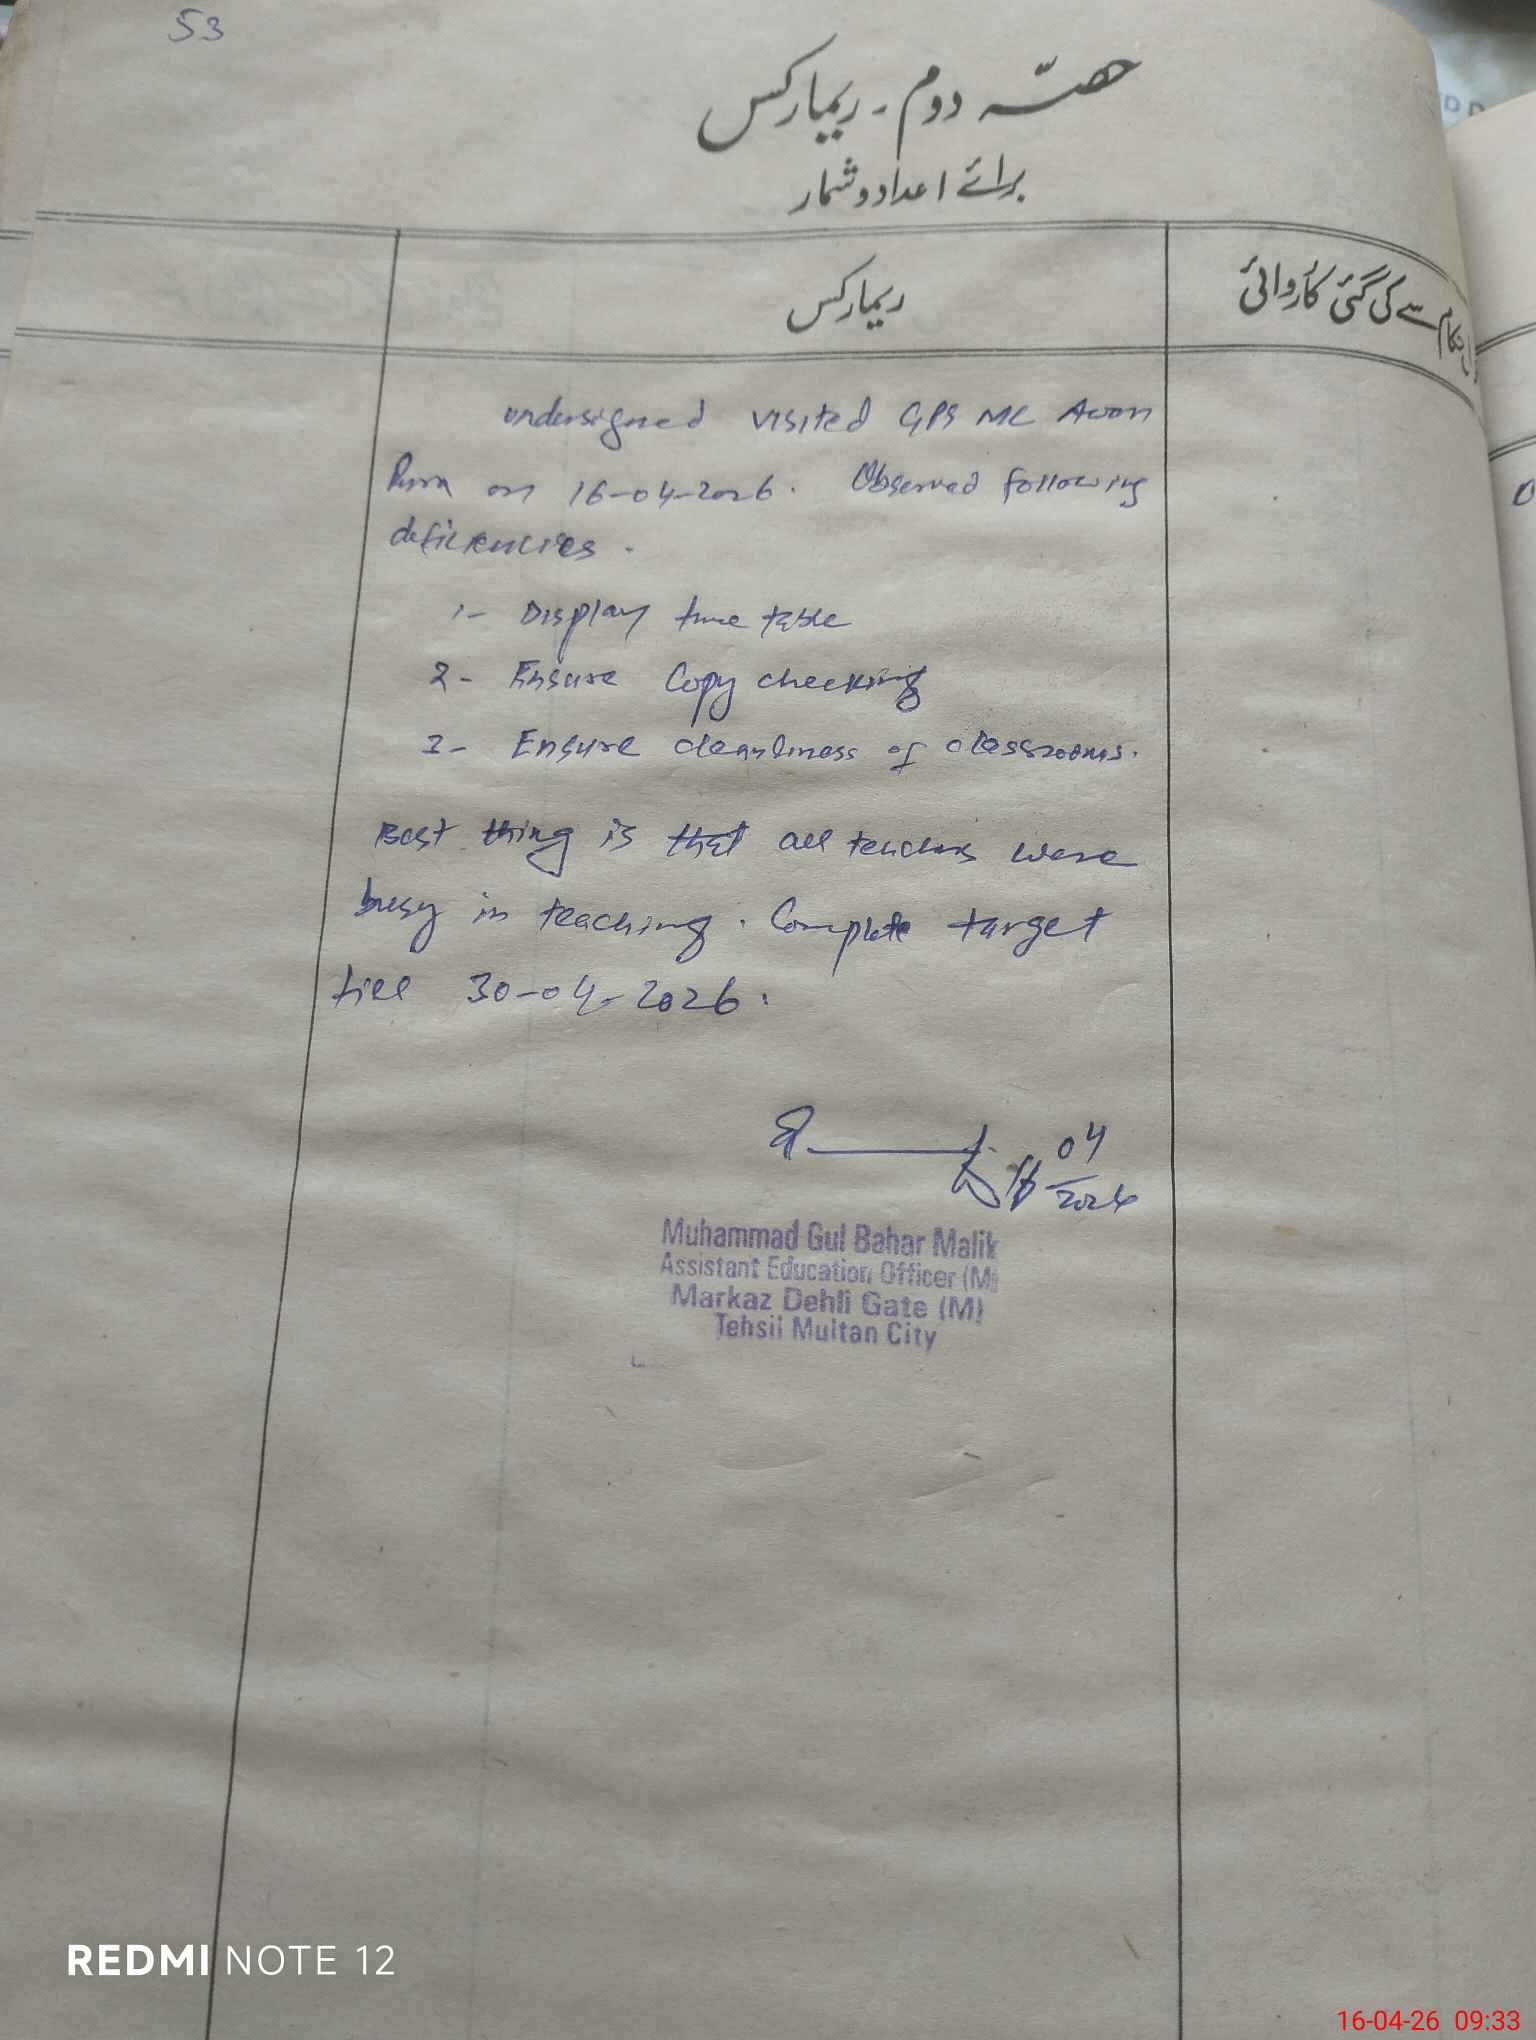 53
حصّہ دوم - ریمارکس
برائے اعداد و شمار
ریمارکس
احکام سے کی گئی کاروائی
undersigned visited GPS MC Awan
Pura on 16-04-2026. Observed following
deficiencies.
1- Display time table
2- Ensure Copy checking
3- Ensure cleanliness of classrooms.
Best thing is that all teachers were
busy in teaching. Complete target
till 30-04-2026.
16 04
2026
Muhammad Gul Bahar Malik
Assistant Education Officer (M)
Markaz Dehli Gate (M)
Tehsil Multan City
REDMI NOTE 12
16-04-26 09:33